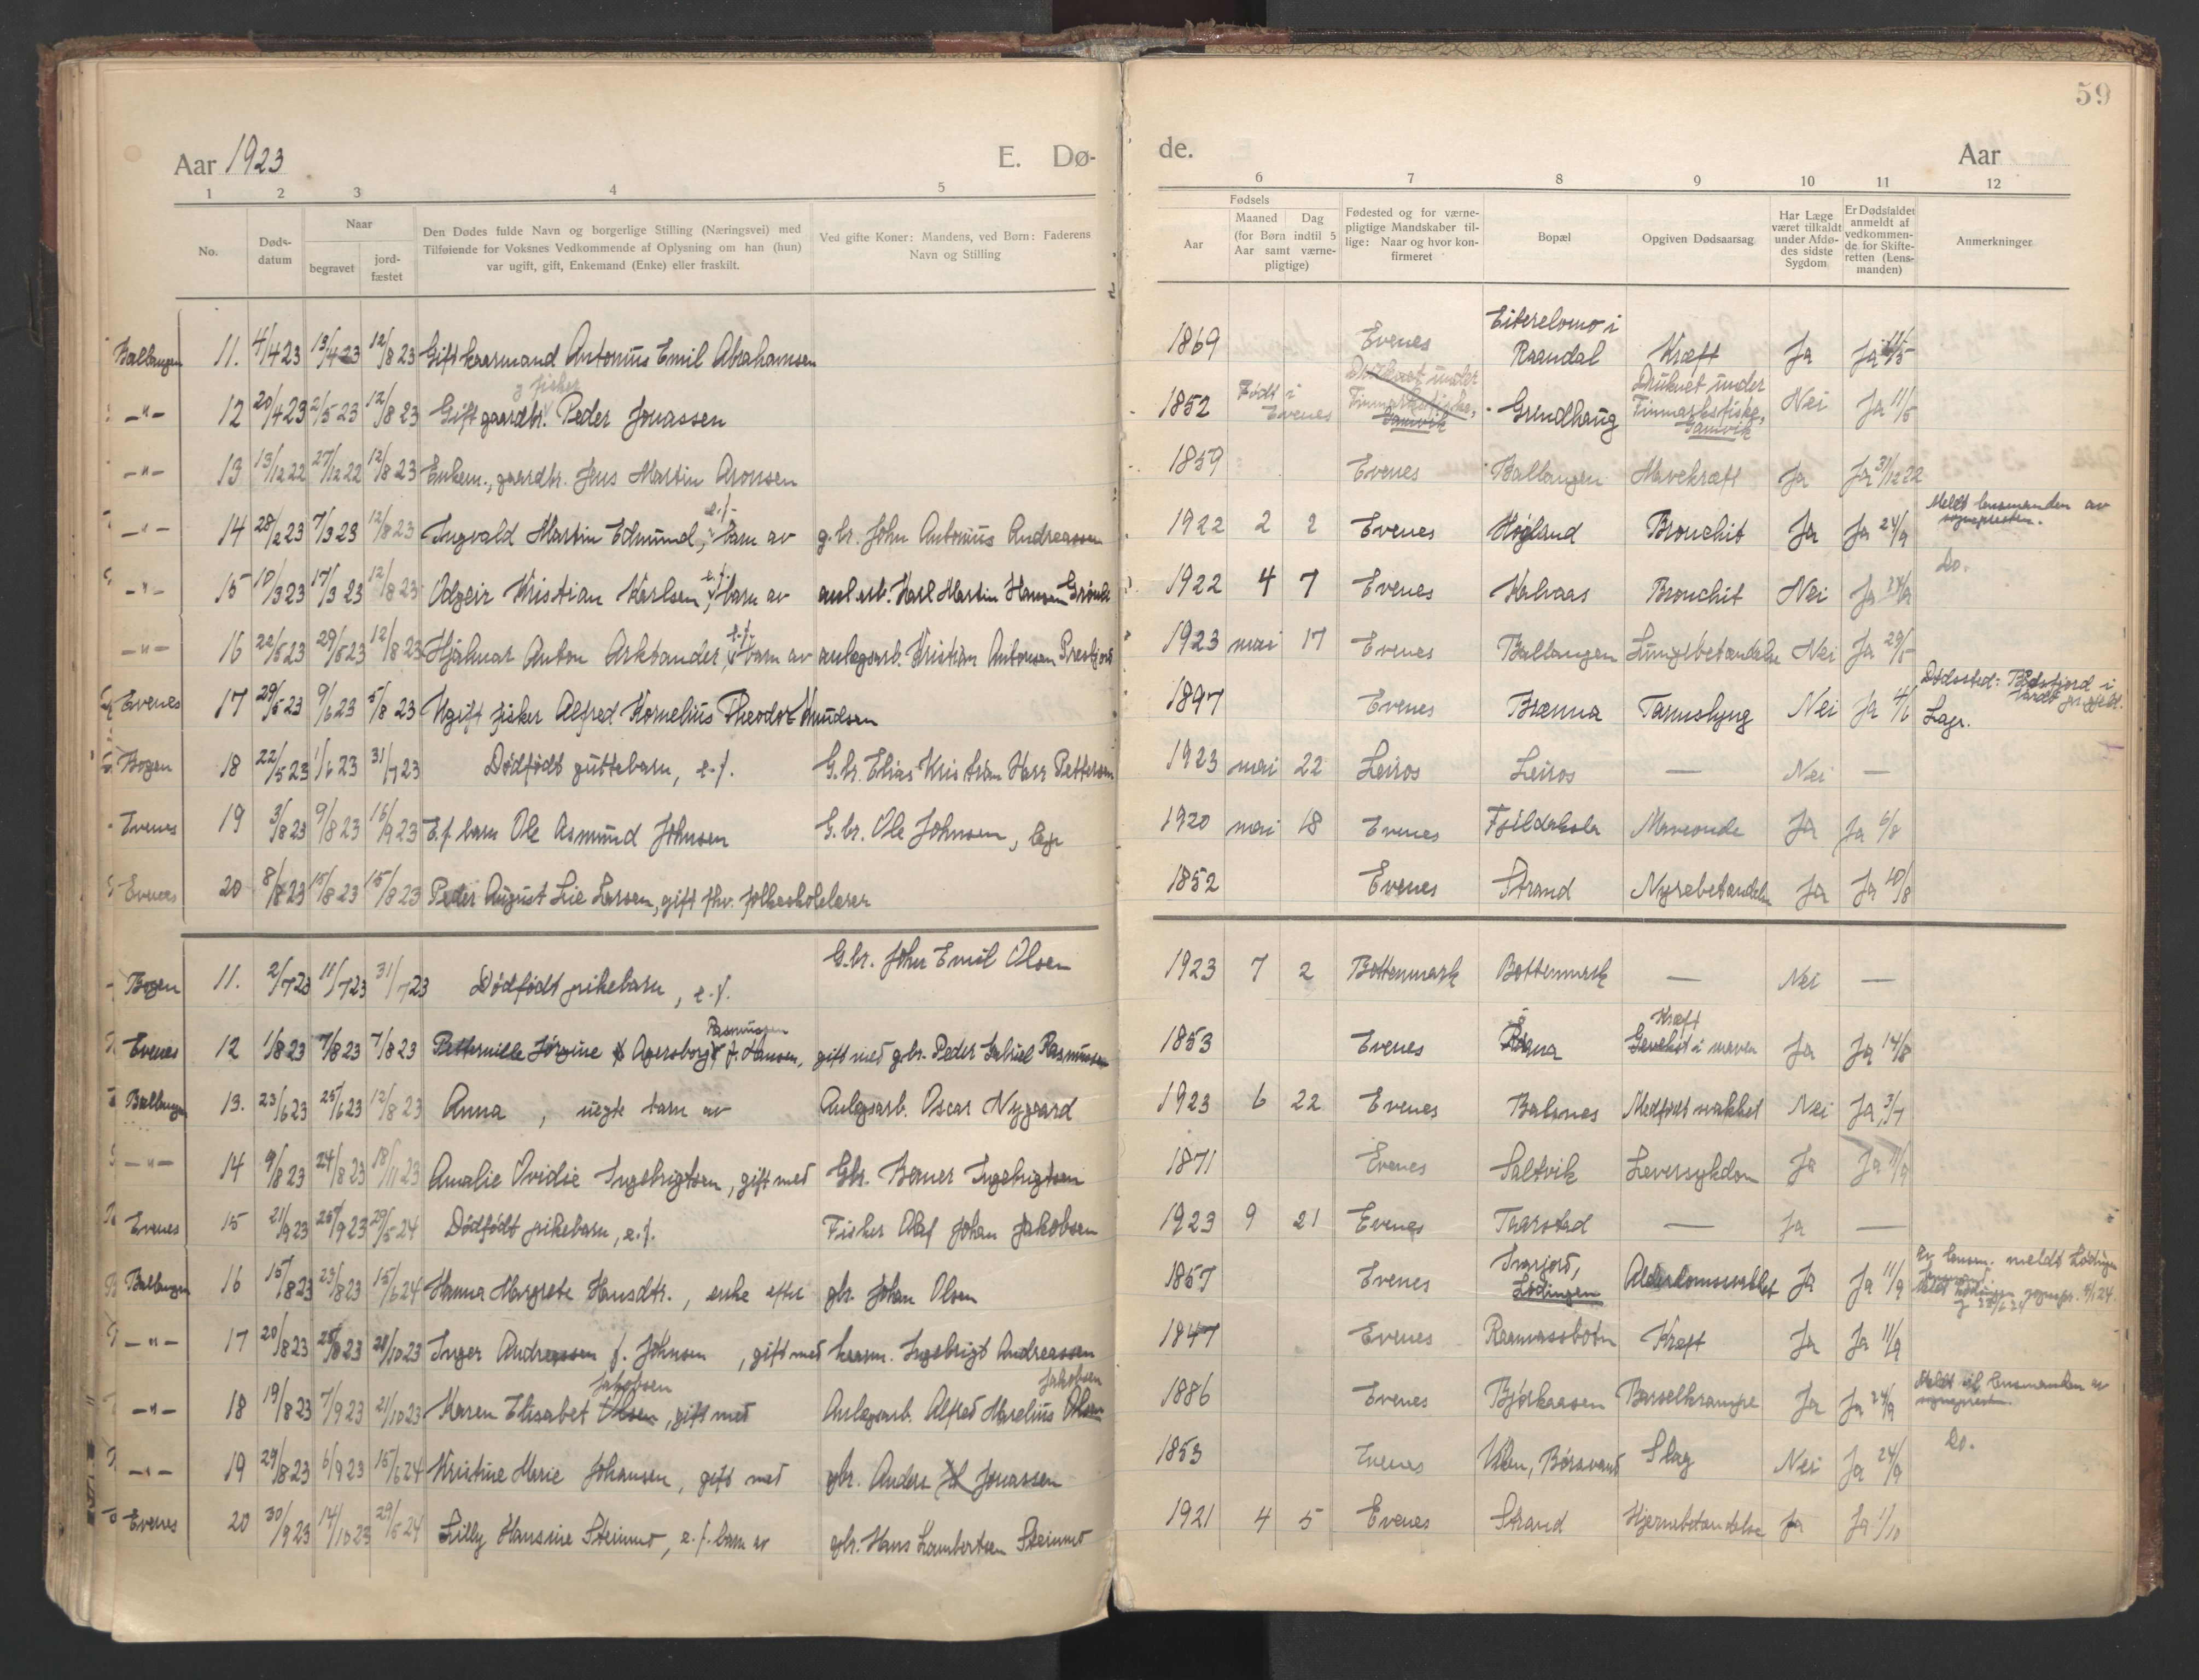 59
Aar 1923
E. Dø-
de.
Aar
1 2 3 4 5
6 7 8 9 10 11 12
No.
Døds-
datum
Naar
begravet
jord-
fæstet
Den Dødes fulde Navn og borgerlige Stilling (Næringsvei) med
Tilføiende for Voksnes Vedkommende af Oplysning om han (hun)
var ugift, gift, Enkemand (Enke) eller fraskilt.
Ved gifte Koner: Mandens, ved Børn: Faderens
Navn og Stilling
Fødsels
Aar
Maaned Dag
(for Børn indtil 5
Aar samt værne-
pligtige)
Fødested og for værne-
pligtige Mandskaber til-
lige: Naar og hvor kon-
firmeret
Bopæl
Opgiven Dødsaarsag
Har Læge
været tilkaldt
under Afdø-
des sidste
Sygdom
Er Dødsfaldet
anmeldt af
vedkommen-
de for Skifte-
retten (Lens-
manden)
Anmerkninger
Ballangen 11. 4/4 23 13/4 23 12/8 23 Gift kaarmand Antonius Emil Abrahamsen 1869 Evenes Raandal Kræft Ja Ja
fisker
-"- 12 20/4 23 2/5 23 12/8 23 Gift gaardbr. Peder Jonassen 1852 Født i Evenes Grundhaug Druknet under Finmarksfiske, Gamvik Nei Ja 11/5
-"- 13 13/12 22 27/12 22 12/8 23 Enkem., gaardbr. Jens Martin Aronsen 1859 Evenes Ballangen Mavekræft Ja Ja 31/12 22
-"- 14 28/2 23 7/3 23 12/8 23 Ingvald Martin Edmund, e.f. barn av g.br. John Antonius Andreassen 1922 2 2 Evenes Høgland Bronchit Ja Ja 24/9 Meldt lensmanden av sognepresten.
-"- 15 10/3 23 17/3 23 12/8 23 Odgeir Kristian Karlsen, e.f. barn av anl.arb. Karl Martin Hansen 1922 4 7 Evenes Bronchit Nei Ja 24/9 Do.
-"- 16 22/5 23 29/5 23 12/8 23 Hjalmar Anton Arktander, e.f. barn av anlegsarb. Kristian Antonsen 1923 mai 17 Evenes Ballangen Lungebetændelse Nei Ja 29/5
Evenes 17 29/5 23 9/6 23 5/8 23 Ugift fisker Alfred Kornelius Theodor Knudsen 1897 Evenes Brenna Nei Ja 4/6 Dødssted: i
Bogen 18 22/5 23 1/6 23 31/7 23 Dødfødt guttebarn, e.f. G.br. Elias Kristian Pettersen 1923 mai 22 Leiros Leiros — Nei —
Evenes 19 3/8 23 9/8 23 16/9 23 E.f. barn Ole Asmund Johnsen G.br. Ole Johnsen, 1920 mai 18 Evenes Maveonde Ja Ja 6/8
Evenes 20 8/8 23 15/8 23 15/8 23 Peder August Lie Larsen, gift fhv. folkeskolelærer 1852 Evenes Strand Nyrebetændelse Ja Ja 10/8
Bogen 11. 2/7 23 11/7 23 31/7 23 Dødfødt pikebarn, e.f. G.br. Johan Emil Olsen 1923 7 2 Bottenmark Bottenmark — Nei —
Evenes 12 1/8 23 7/8 23 7/8 23 Petternille Jørgine Agersborg Rasmussen f. Hansen, gift med gbr. Peder Gabriel Rasmussen 1853 Evenes Kræft i maven Ja Ja 14/8
Ballangen 13. 23/6 23 25/6 23 12/8 23 Anna, uegte barn av Anlegsarb. Oscar Nygaard 1923 6 22 Evenes Balsnes Medfødt svakhet Nei Ja 3/7
-"- 14 9/8 23 24/8 23 18/11 23 Amalie Ovidie Ingebrigtsen, gift med Gbr. Berner Ingebrigtsen 1871 Evenes Saltvik Leversykdom Ja Ja
Evenes 15 21/9 23 25/9 23 29/5 24 Dødfødt pikebarn, e.f. Fisker Olaf Johan Jakobsen 1923 9 21 Evenes Taarstad — Ja —
Ballangen 16 15/8 23 23/8 23 15/6 24 Hanna Margrete Hansdtr., enke efter gbr. Johan Olsen 1857 Evenes Lødingen Alderdomssvakhet Ja Ja 11/9
-"- 17 20/8 23 23 21/10 23 Inger Andreassen f. Johnsen, gift med kaarm. Ingebrigt Andreassen 1847 Evenes Raanvassbotn Kræft Ja Ja 11/9
-"- 18 19/8 23 7/9 23 21/10 23 Karen Elisabet Olsen Jakobsen, gift med Anlegsarb. Alfred Marelius Olsen Jakobsen 1886 Evenes Bjørkaasen Barselkrampe Ja Ja 24/9 Meldt til lensmanden av sognepresten.
-"- 19 29/8 23 6/9 23 15/6 24 Kristine Marie Johansen, gift med gbr. Anders Jonassen 1853 Evenes Børsvand Slag Nei Ja 24/9 Do.
Evenes 20 30/9 23 14/10 23 29/5 24 Lilly Hansine Steinmo, e.f. barn av gbr. Hans Lambertsen Steinmo 1921 4 5 Evenes Strand Hjernebetændelse Ja Ja 1/10